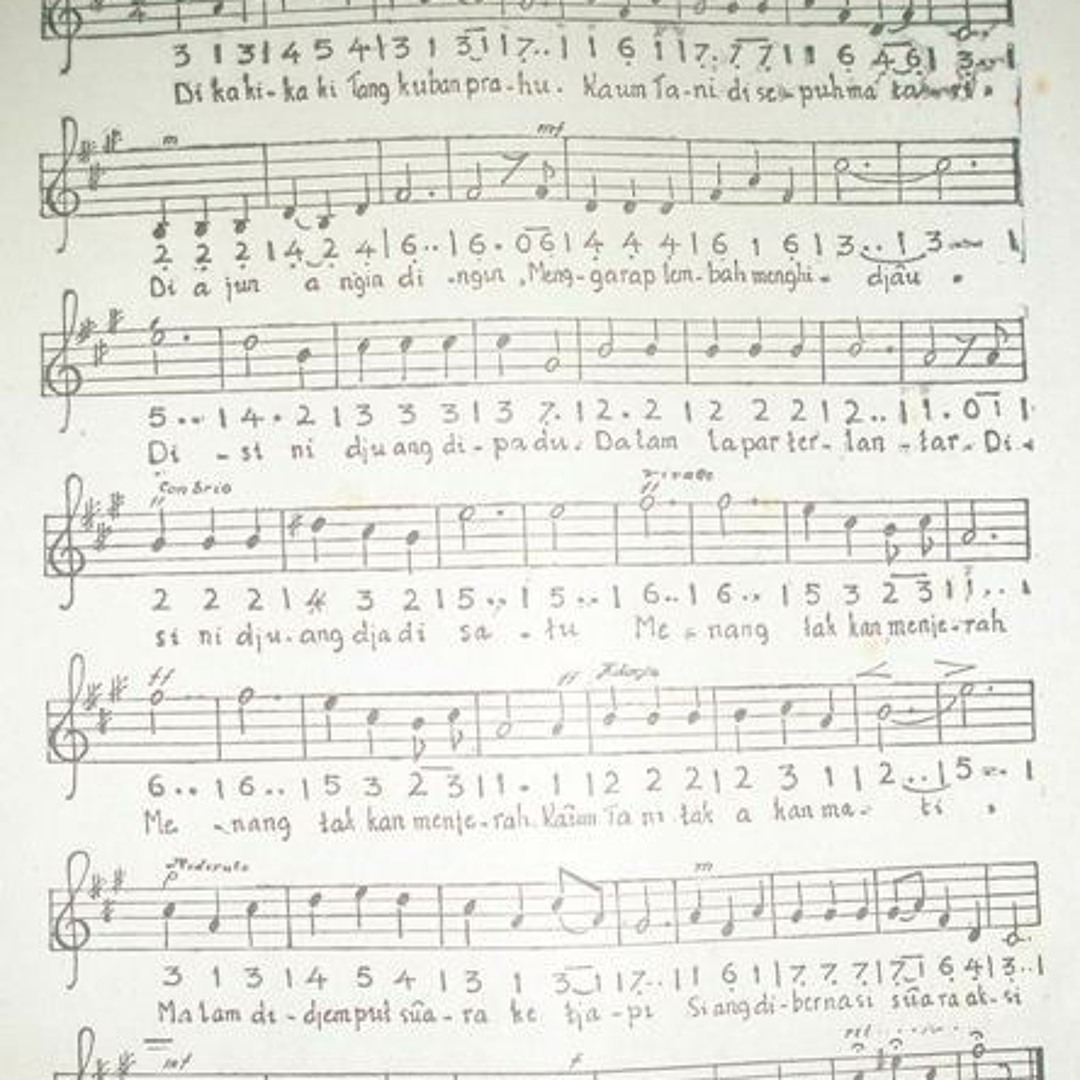 3 1 3 | 4 5 4 | 3 1 3 1 | 7 . . | 1 6 1 | 7 . 7 7 | 1 1 6 4 6 | 3 . . |
Di kaki-kaki Tangkuban pra-hu. Kaum Ta-ni di se-puh ma
m mf
2 2 2 | 4 2 4 | 6 . . | 6 . 0 6 | 4 4 4 | 6 1 6 | 3 . . | 3 . . |
Di a jun a ngin di -ngin , Meng-garap lem-bah menghi- djau .
f
5 . . | 4 . 2 | 3 3 3 | 3 7 . | 2 . 2 | 2 2 2 | 2 . . | 1 . 0 1 |
Di - si ni djuang di-padu. Dalam lapar ter-lan-tar. Di-
Con Brio ff Vivace ff
2 2 2 | 4 3 2 | 5 . . | 5 . . | 6 . . | 6 . . | 5 3 2 3 | 1 . . |
si ni dju-ang djadi sa - tu Me - nang tak kan menje-rah
ff ff Adagio < >
6 . . | 6 . . | 5 3 2 3 | 1 . 1 | 2 2 2 | 2 3 1 | 2 . . | 5 . . |
Me - nang tak kan menje-rah. Kaum Tani tak a kan ma- ti .
Moderato p m
3 1 3 | 4 5 4 | 3 1 3 1 | 7 . . | 1 6 1 | 7 7 7 | 7 1 6 4 | 3 . . |
Malam di-djemput sua-ra ke tja-pi Siang di-bernasi suara ak-si
mf f